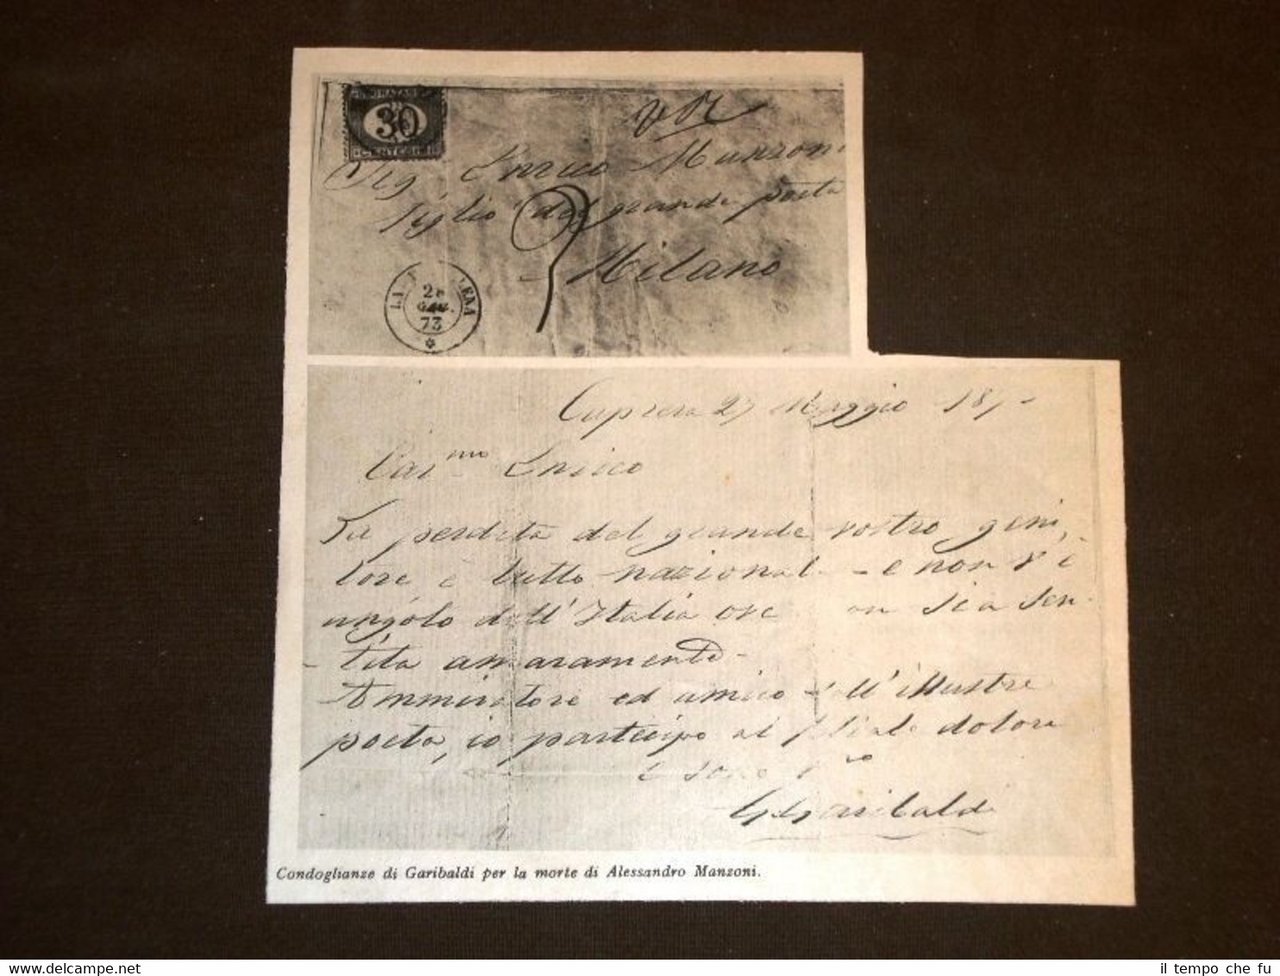 SEGNATASSE
30
CENTESIMI
Sig. Enrico Manzoni
figlio del grande poeta
Milano
28
73
Caprera 27 Maggio 187-
Car.mo Enrico
La perdita del grande vostro geni,
tore è lutto nazionale - e non v'è
angolo dell'Italia ove non sia sen-
tita amaramente -
Ammiratore ed amico dell'illustre
poeta, io partecipo al filiale dolore
e sono V.ro
G. Garibaldi
Condoglianze di Garibaldi per la morte di Alessandro Manzoni.
il tempo che fu